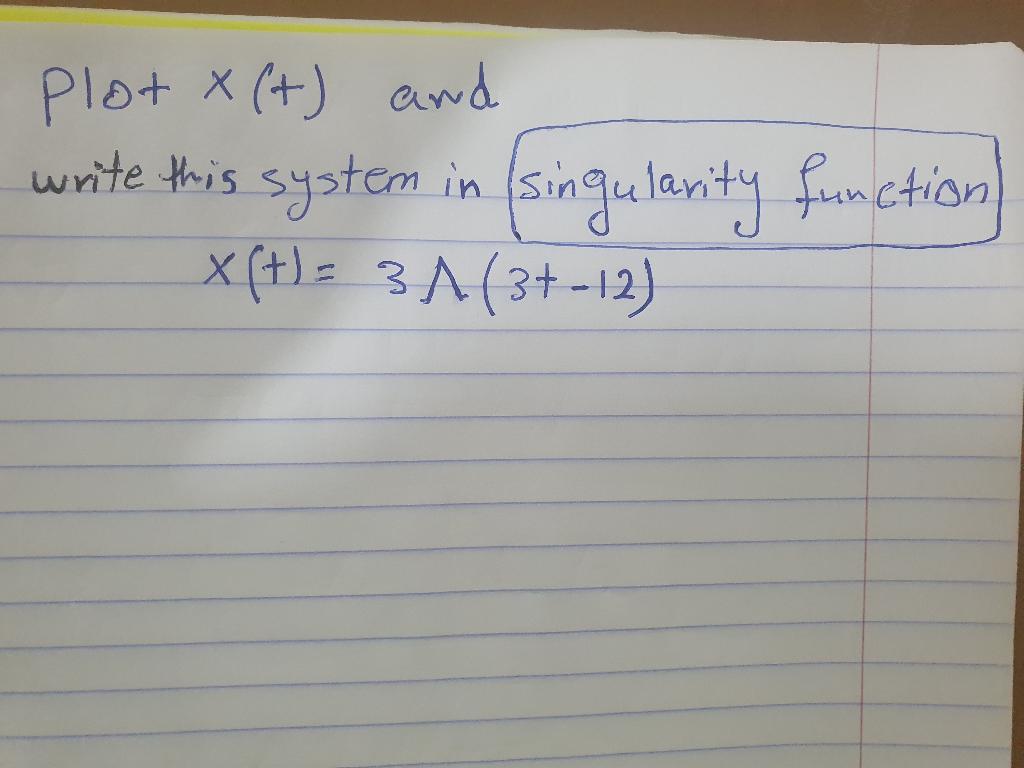 Plot x(t) and
write this system in singularity function
x(t) = 3 Λ (3t - 12)